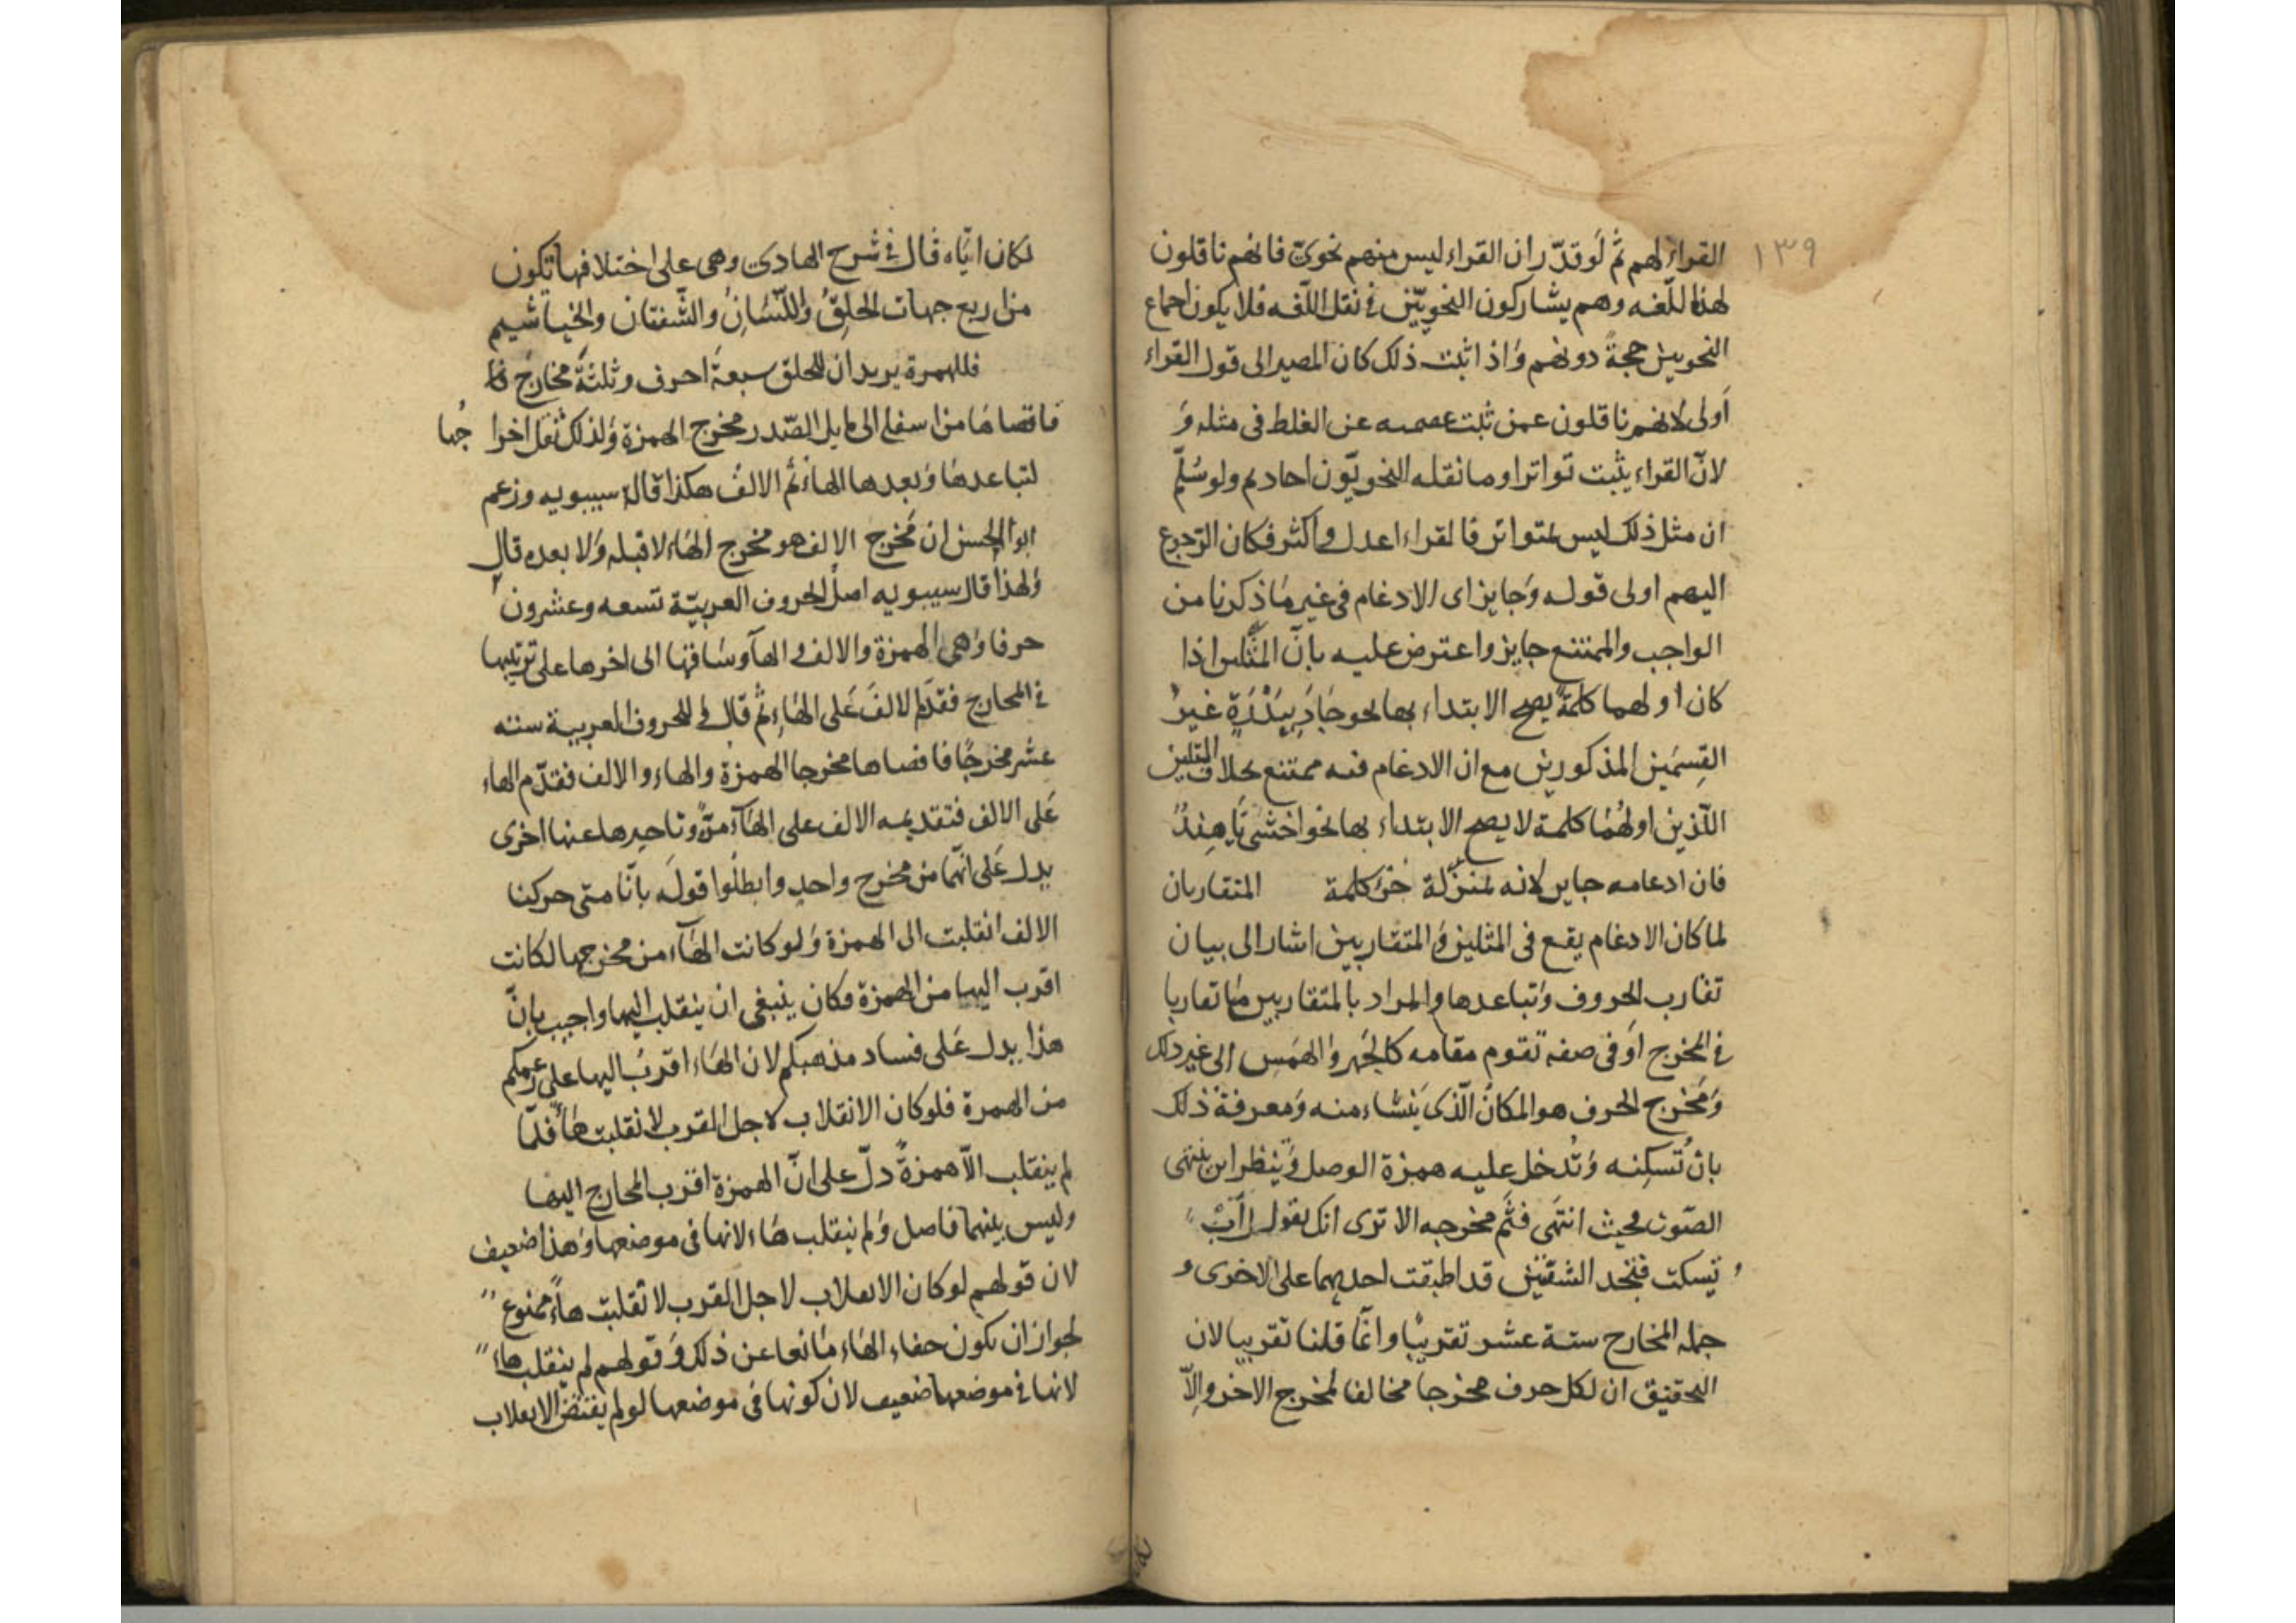 ١٣٩
القراء لهم ثم لو قدّر ان القراء ليس منهم نحوىّ فانهم ناقلون
لهذه اللّغه وهم يشاركون النحويّين فى نقل اللّغه فلا يكون اجماع
النحويين حجةً دونهم وَاذا ثبت ذلك كان المصير الى قول القراء
أولى لانهم ناقلون عمن ثبت عصمته عن الغلط فى مثله وَ
لانّ القراء يثبت تواترا وما نقله النحويّون احاد ثم ولو سُلّم
ان مثل ذلك ليس بمتواتر فالقراء اعدل واكثر فكان الرّجوع
اليهم اولى قوله وَجايز اى الادغام فى غير مَا ذكرنا من
الواجب والممتنع جايز واعترض عليه بانّ المثلين اذا
كان اولهما كلمة يصح الابتداء بها نحو جَاءَ بِبَدْرَةٍ غيرُ
القِسمَين المذكورين مع ان الادغام فيه ممتنع بخلاف المثلين
اللّذين اولهُمَا كلمة لا يصح الابتداء بها نحو اخشى يَا هِندُ
فان ادغامه جايز لانه بمنزّلة جزؤ كلمة المتقاربان
لما كان الادغام يقع فى المثلين وَالمتقاربين اشار الى بيان
تقارب الحروف وَتباعدها والمراد بالمتقاربين مَا تقاربا
فى المخرج اوَ فى صفه تقوم مقامه كالجَهر وَالهَمَس الى غير ذلك
وَمَخرج الحرف هو المكانُ الّذى يَنشاء منه وَمعرفة ذلك
بان تُسكِنه وَتُدخل عليه همزة الوصل وَيَنظر اين ينتهى
الصّوت فحيث انتهَى فثَم مخرجه الا ترى انك تقول اَبْ
و تسكت فتجد الشفتين قد اطبقت احديهما على الاخرى و
جمله المخارج ستة عشر تقريبًا وانّما قلنا تقريبا لان
التحقيق ان لكل حرف مخرجا مخالفا لمخرج الاخر والّا
لكان ايّاه قال فى شرح الهادى وهى على اختلافها تكون
من اربع جهات الحلقُ وَاللّسَانُ وَالشّفتان والخياشيم
فللهمزة يريد ان للحلق سبعةَ احرف وثلثةَ مخارج
فاقصاهَا من اسفله الى مايلى الصّدر مخرج الهمزة وَلذلك ثقل اخراجها
لتباعدهَا وَبعدها الهاءُ ثم الالف هكذا قاله سيبويه وزعم
ابو الحسن ان مَخرج الالف هو مخرج الهَاء لا قبله وَلا بعده قال
وَلهذا قال سيبويه اصل الحروف العربيّة تسعه وعشرون
حرفا وَهى الهمزة والالف والهآ وسَاقها الى اخرها على ترتيبها
فى المخارج فقدّم الالفَ عَلى الهَاءِ ثم قال و للحروف العربية سته
عشر مخرجًا فاقصاها مخرجا الهمزة والهاء والالف فقدّم الهاء
عَلى الالف فتقديمه الالف على الهَآء مرّةً وتاخيرها عنها اخرى
يدل عَلى انهّما من مخرج واحدٍ وابطلُوا قولَه بانّا متى حركنا
الالف انقلبت الى الهمزة وَلو كانت الهَآء من مخرجها لكانت
اقرب اليها من الهمزة فكان ينبغى ان ينقلب اليها واجيب بانّ
هذا يدل عَلى فساد مذهبكم لان الهَاء اقربُ اليها على زعمكم
من الهمزة فلو كان الانقلاب لاجل القرب لانقلبت هاءً فلمّا
لم ينقلب الاّ همزةً دلّ على انّ الهمزة اقرب المخارج اليها
وليس بينهما فاصل وَلم ينقلب هَاء لانها فى موضعها وَهذا ضعيف
لان قولهم لو كان الانقلاب لاجل القرب لانقلبت هاءً ممنوع
لجواز ان يكون خفاء الهَاء مَانعا عن ذلك وَقولهم لم ينقلب هاءً
لانها فى موضعها ضعيف لان كونها فى موضعها لو لم يقتض الانقلاب